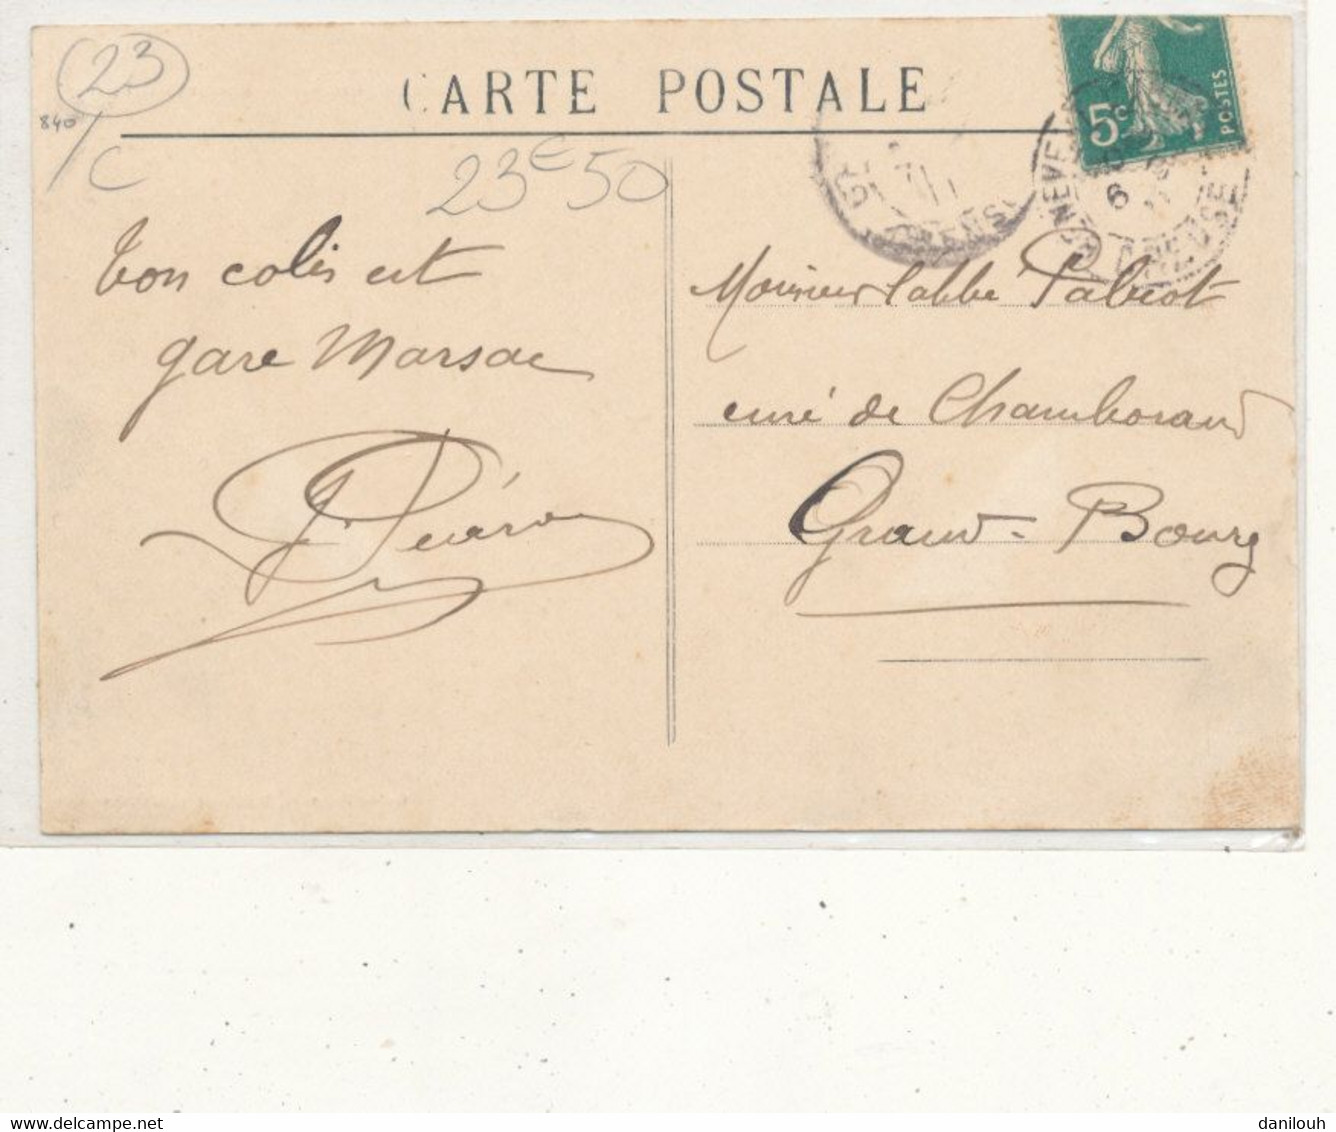 23
840
C
CARTE POSTALE
23€50
5c
POSTES
6
CREUSE
ton colis est
gare Marsac
Monsieur l'abbé Pabiot
curé de Chamborand
Grand-Bourg
www.delcampe.net
danilouh